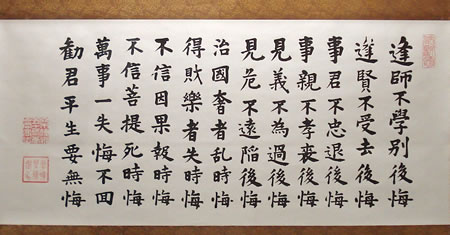 逢師不學別後悔
逢賢不受去後悔
事君不忠退後悔
事親不孝喪後悔
見義不為過後悔
見危不遠陷後悔
治國奢者亂時悔
得財樂者失時悔
不信因果報時悔
不信菩提死時悔
萬事一失悔不回
勸君平生要無悔